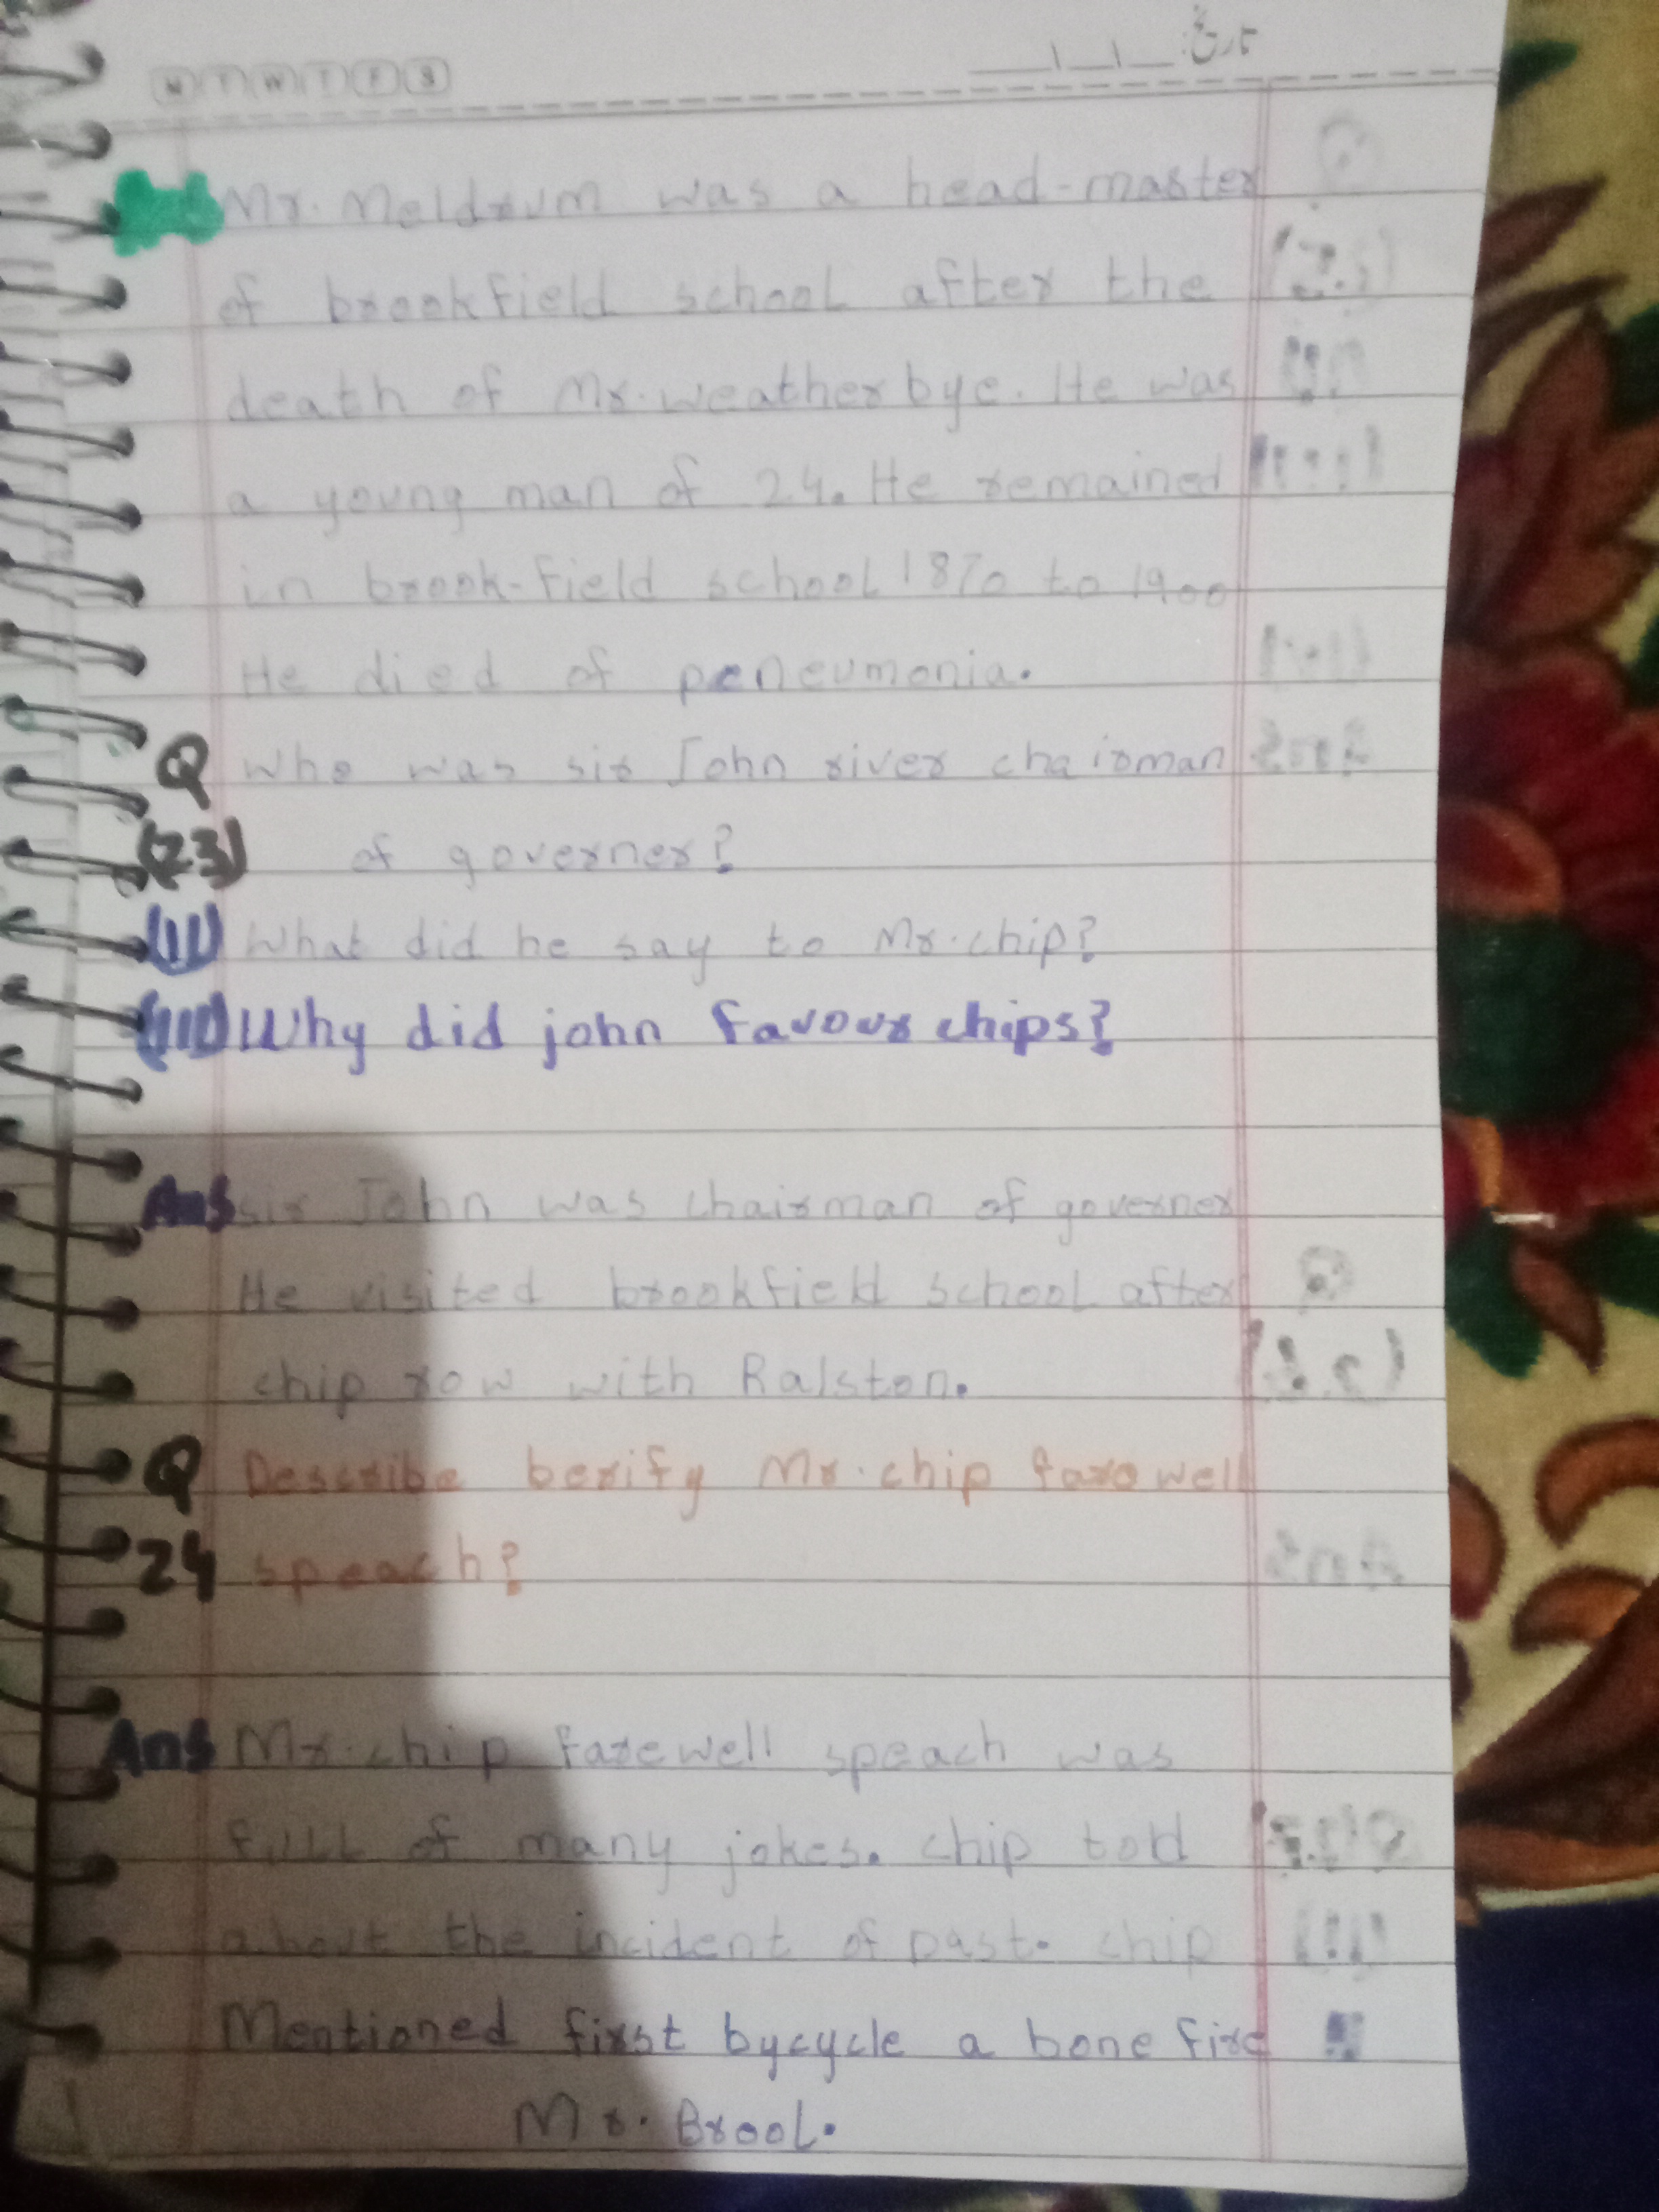 M T W T F S
تاریخ: __/__/__
Mr. Meldrum was a head-master
of brookfield school after the
death of Mr. weatherbye. He was
a young man of 24. He remained
in brook-field school 1870 to 1900
He died of peneumonia.
Q who was sir John river chairman
(23) of governer?
(II) What did he say to Mr. chip?
(III) Why did john favour chips?
Ans sir John was chairman of governer
He visited brookfield school after
chip row with Ralston.
Q Describe berify Mr. chip farewell
24 speach?
Ans Mr. chip farewell speach was
full of many jokes. chip told
about the incident of past. chip
Mentioned first bycycle a bone fire
Mr. Brool.